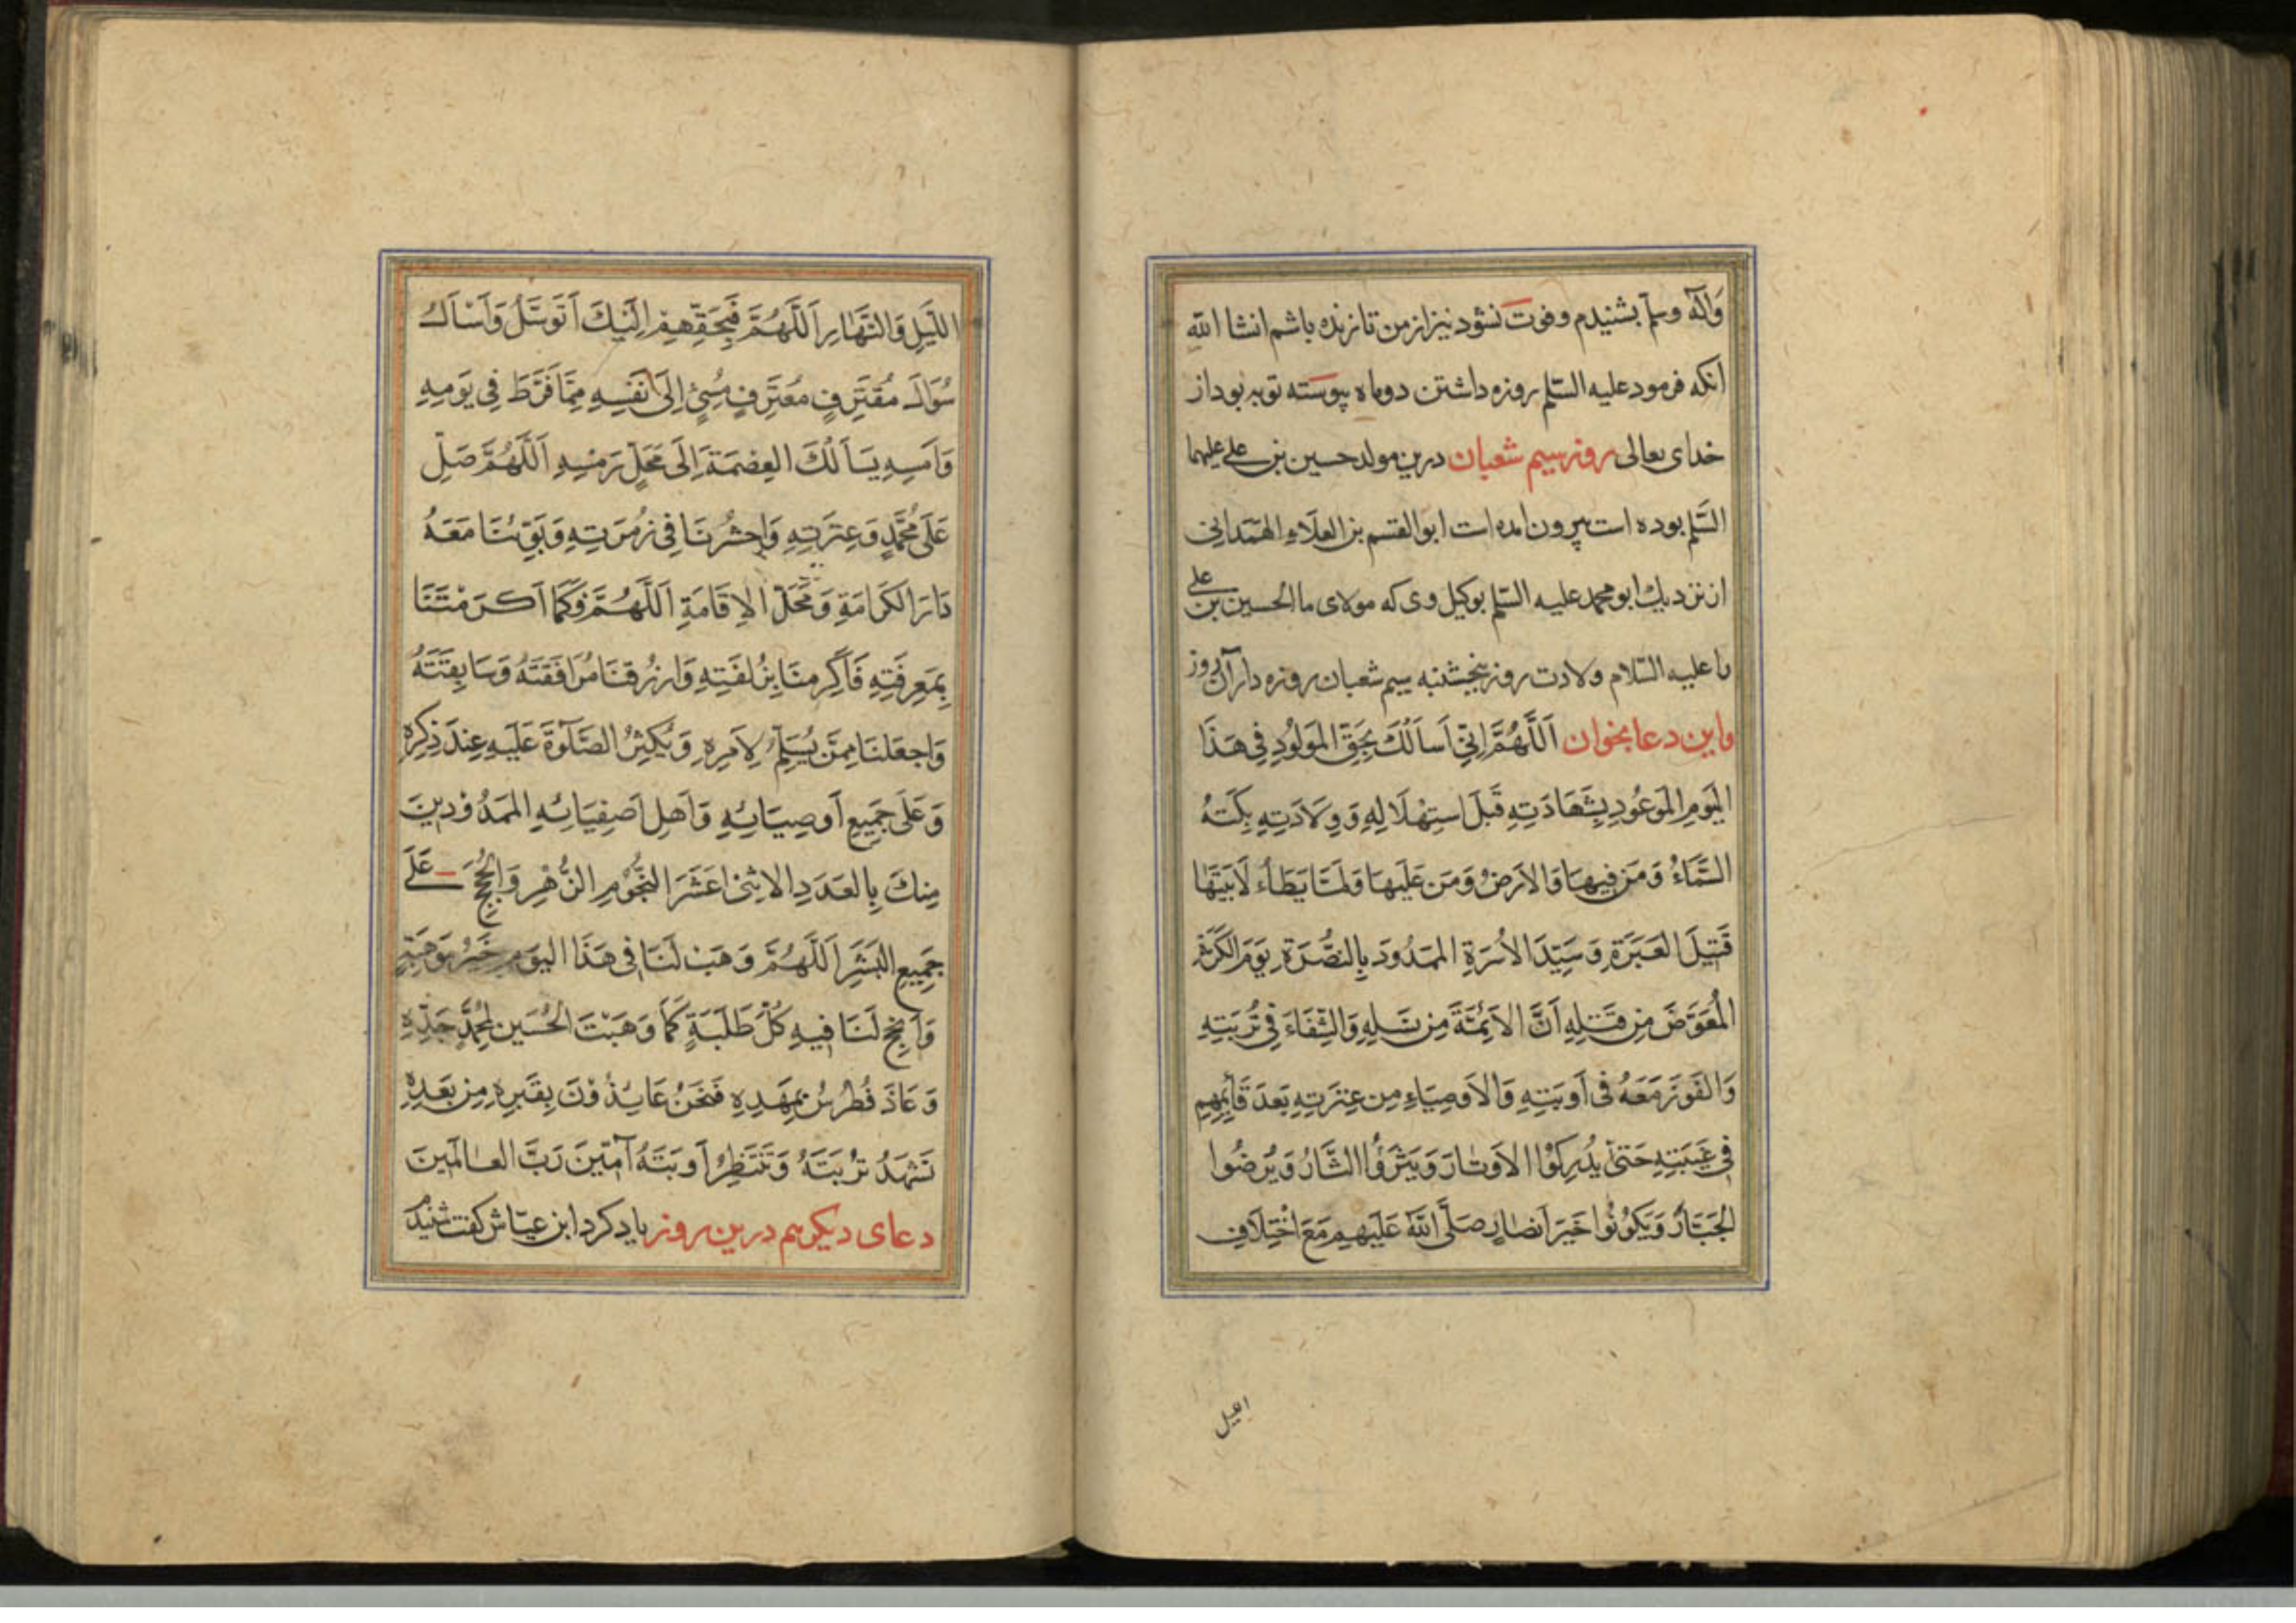 وَآله وسلم بشنیدم وفوت نشود نیز از من تا زنده باشم انشا الله
انکه فرمود علیه السّلم روزه داشتن دوماه پیوسته توبه بود از
خدای تعالی روز سیم شعبان درین مولد حسین بن علی علیهما
السّلم بوده است بیرون امده است ابوالقسم بن العلَاءِ الهَمَدانی
از نزدیك ابو محمد علیه السّلم بوکیل وی که مولای ما الحسین بن علی
را علیه السّلام ولادت روز پنجشنبه سیم شعبان روزه دار آن روز
واین دعا بخوان اَللَّهُمَّ اِنّی اَسأَلُكَ بِحَقِّ المَولُودِ فِی هَذَا
الیَومِ المَوعُودِ بِشَهَادَتِهِ قَبلَ استِهلَالِهِ وَوِلَادَتِهِ بَكَتهُ
السَّمَاءُ وَمَن فِیهَا وَالاَرضُ وَمَن عَلَیهَا وَلَمَّا یَطَاء لَابَیَتَهَا
قَتِیلَ العَبَرَةِ وَسَیِّدَ الاُسرَةِ المَمدُودَ بِالنُّصرَةِ یَومَ الكَرَّةِ
المُعَوَّضَ مِن قَتلِهِ اَنَّ الاَئِمَّةَ مِن نَسلِهِ وَالشِّفَاءَ فِی تُربَتِهِ
وَالفَوزَ مَعَهُ فی اَوبَتِهِ وَالاَوصِیَاءِ مِن عِترَتِهِ بَعدَ قَائِمِهِم
فی غَیبَتِهِ حَتّی یُدرِكُوا الاَوتَارَ وَیَثَرُوا الثَّارَ وَیُرضُوا
الجَبَّارَ وَیَكُونُوا خَیرَ اَنصَارٍ صَلَّی اللهُ عَلَیهِم مَعَ اختِلَافِ
اللیل
اللَّیلِ وَالنَّهَارِ اَللَّهُمَّ فَبِحَقِّهِم اِلَیكَ اَتَوَسَّلُ وَاَسأَلُ
سُوَالَ مُقتَرِفٍ مُعتَرِفٍ مُسِیءٍ اِلَی نَفسِهِ مِمَّا فَرَّطَ فِی یَومِهِ
وَاَمسِهِ یَسأَلُكَ العِصمَةَ اِلَی مَحَلِّ رَمسِهِ اَللَّهُمَّ صَلِّ
عَلَی مُحَمَّدٍ وَعِترَتِهِ وَاحشُرنَا فِی زُمرَتِهِ وَبَوِّئنَا مَعَهُ
دَارَ الكَرَامَةِ وَمَحَلَّ الاِقَامَةِ اَللَّهُمَّ وَكَمَا اَكرَمتَنَا
بِمَعرِفَتِهِ فَاَكرِمنَا بِزُلفَتِهِ وَارزُقنَا مُرَافَقَتَهُ وَسَابِقَتَهُ
وَاجعَلنَا مِمَّن یُسَلِّمُ لِاَمرِهِ وَیُكثِرُ الصَّلوٰةَ عَلَیهِ عِندَ ذِكرِهِ
وَعَلَی جَمِیعِ اَوصِیَائِهِ وَاَهلِ اَصفِیَائِهِ المَمدُودِینَ
مِنكَ بِالعَدَدِ الاثنَی عَشَرَ النُّجُومِ الزُّهرِ وَالحُجَجِ عَلَی
جَمِیعِ البَشَرِ اَللَّهُمَّ وَهَب لَنَا فی هَذَا الیَومِ خَیرَ مَوهِبَةٍ
وَاَنجِح لَنَا فِیهِ كُلَّ طَلِبَةٍ كَمَا وَهَبتَ الحُسَینَ لِمُحَمَّدٍ جَدِّهِ
وَعَاذَ فُطرُسُ بِمَهدِهِ فَنَحنُ عَائِذُونَ بِقَبرِهِ مِن بَعدِهِ
نَشهَدُ تُربَتَهُ وَنَنتَظِرُ اَوبَتَهُ آمینَ رَبَّ العالَمینَ
دعای دیکر هم درین روز یاد کرد ابن عیّاش کفت شنیدم